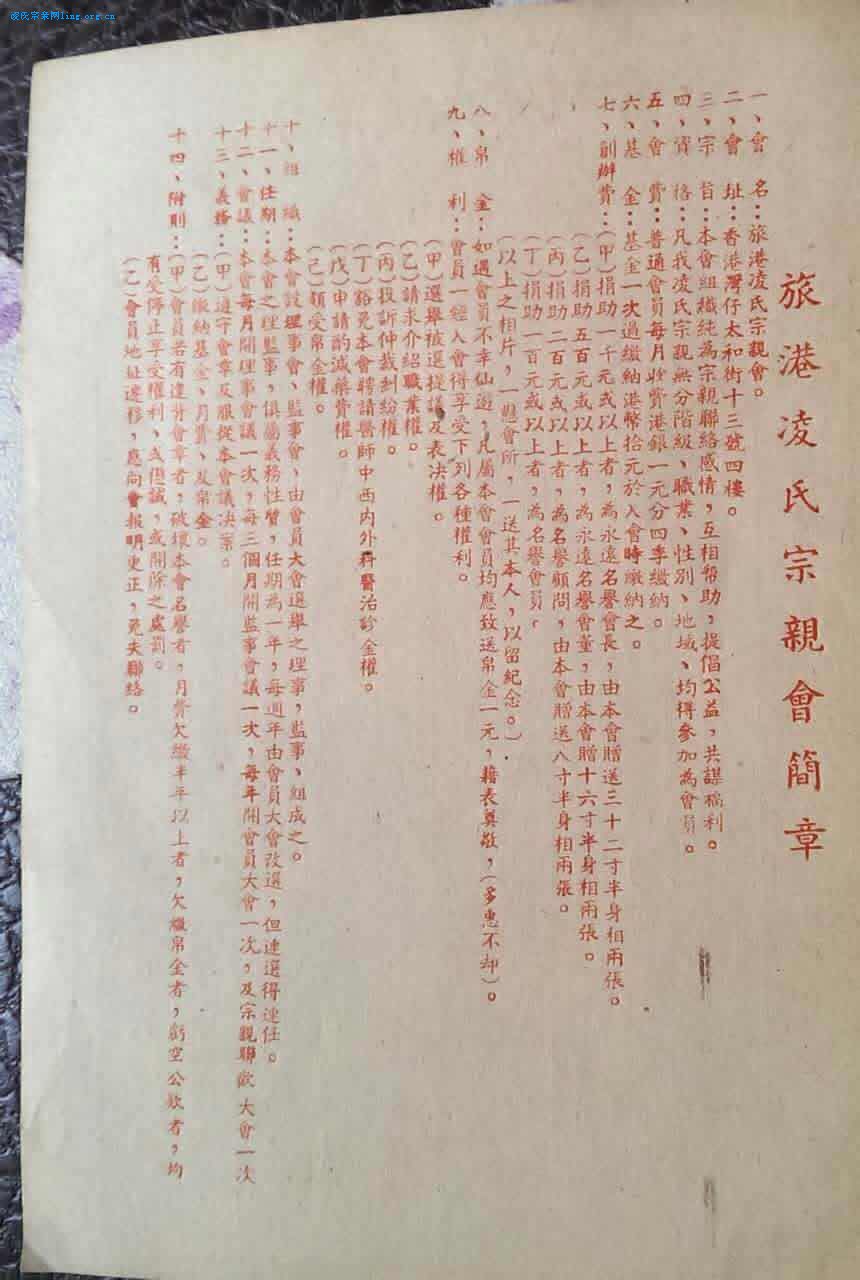 凌氏宗亲网ling.org.cn
旅港凌氏宗親會簡章
一、會名：旅港凌氏宗親會。
二、會址：香港灣仔太和街十三號四樓。
三、宗旨：本會組織純為宗親聯絡感情，互相幫助，提倡公益，共謀福利。
四、資格：凡我凌氏宗親無分階級、職業、性別、地域、均得參加為會員。
五、會費：普通會員每月收費港銀一元分四季繳納。
六、基金：基金一次過繳納港幣拾元於入會時繳納之。
七、創辦費：（甲）捐助一千元或以上者，為永遠名譽會長，由本會贈送三十二寸半身相兩張。
（乙）捐助五百元或以上者，為永遠名譽會董，由本會贈十六寸半身相兩張。
（丙）捐助二百元或以上者，為名譽顧問，由本會贈送八寸半身相兩張。
（丁）捐助一百元或以上者，為名譽會員，
（以上之相片，一懸會所，一送其本人，以留紀念。）．
八、帛金：如遇會員不幸仙遊，凡屬本會會員均應致送帛金一元，藉表奠敬，（多惠不却）。
九、權利：會員一經入會得享受下列各種權利。
（甲）選舉被選提議及表決權。
（乙）請求介紹職業權。
（丙）投訴仲裁糾紛權。
（丁）豁免本會聘請醫師中西內外科醫治診金權。
（戊）申請酌減藥費權。
（己）領受帛金權。
十、組織：本會設理事會、監事會，由會員大會選舉之理事，監事、組成之。
十一、任期：本會之理監事，俱屬義務性質，任期為一年，每週年由會員大會改選，但連選得連任。
十二、會議：本會每月開理事會議一次，每三個月開監事會議一次，每年開會員大會一次，及宗親聯歡大會一次
十三、義務：（甲）遵守會章及服從本會議決案。
（乙）繳納基金、月費、及帛金。
十四、附則：（甲）會員若有違背會章者，破壞本會名譽者，月費欠繳半年以上者，欠繳帛金者，虧空公欵者，均
有受停止享受權利、或懲誡，或開除之處罰。
（乙）會員地址遷移，應向會報明更正，免失聯絡。